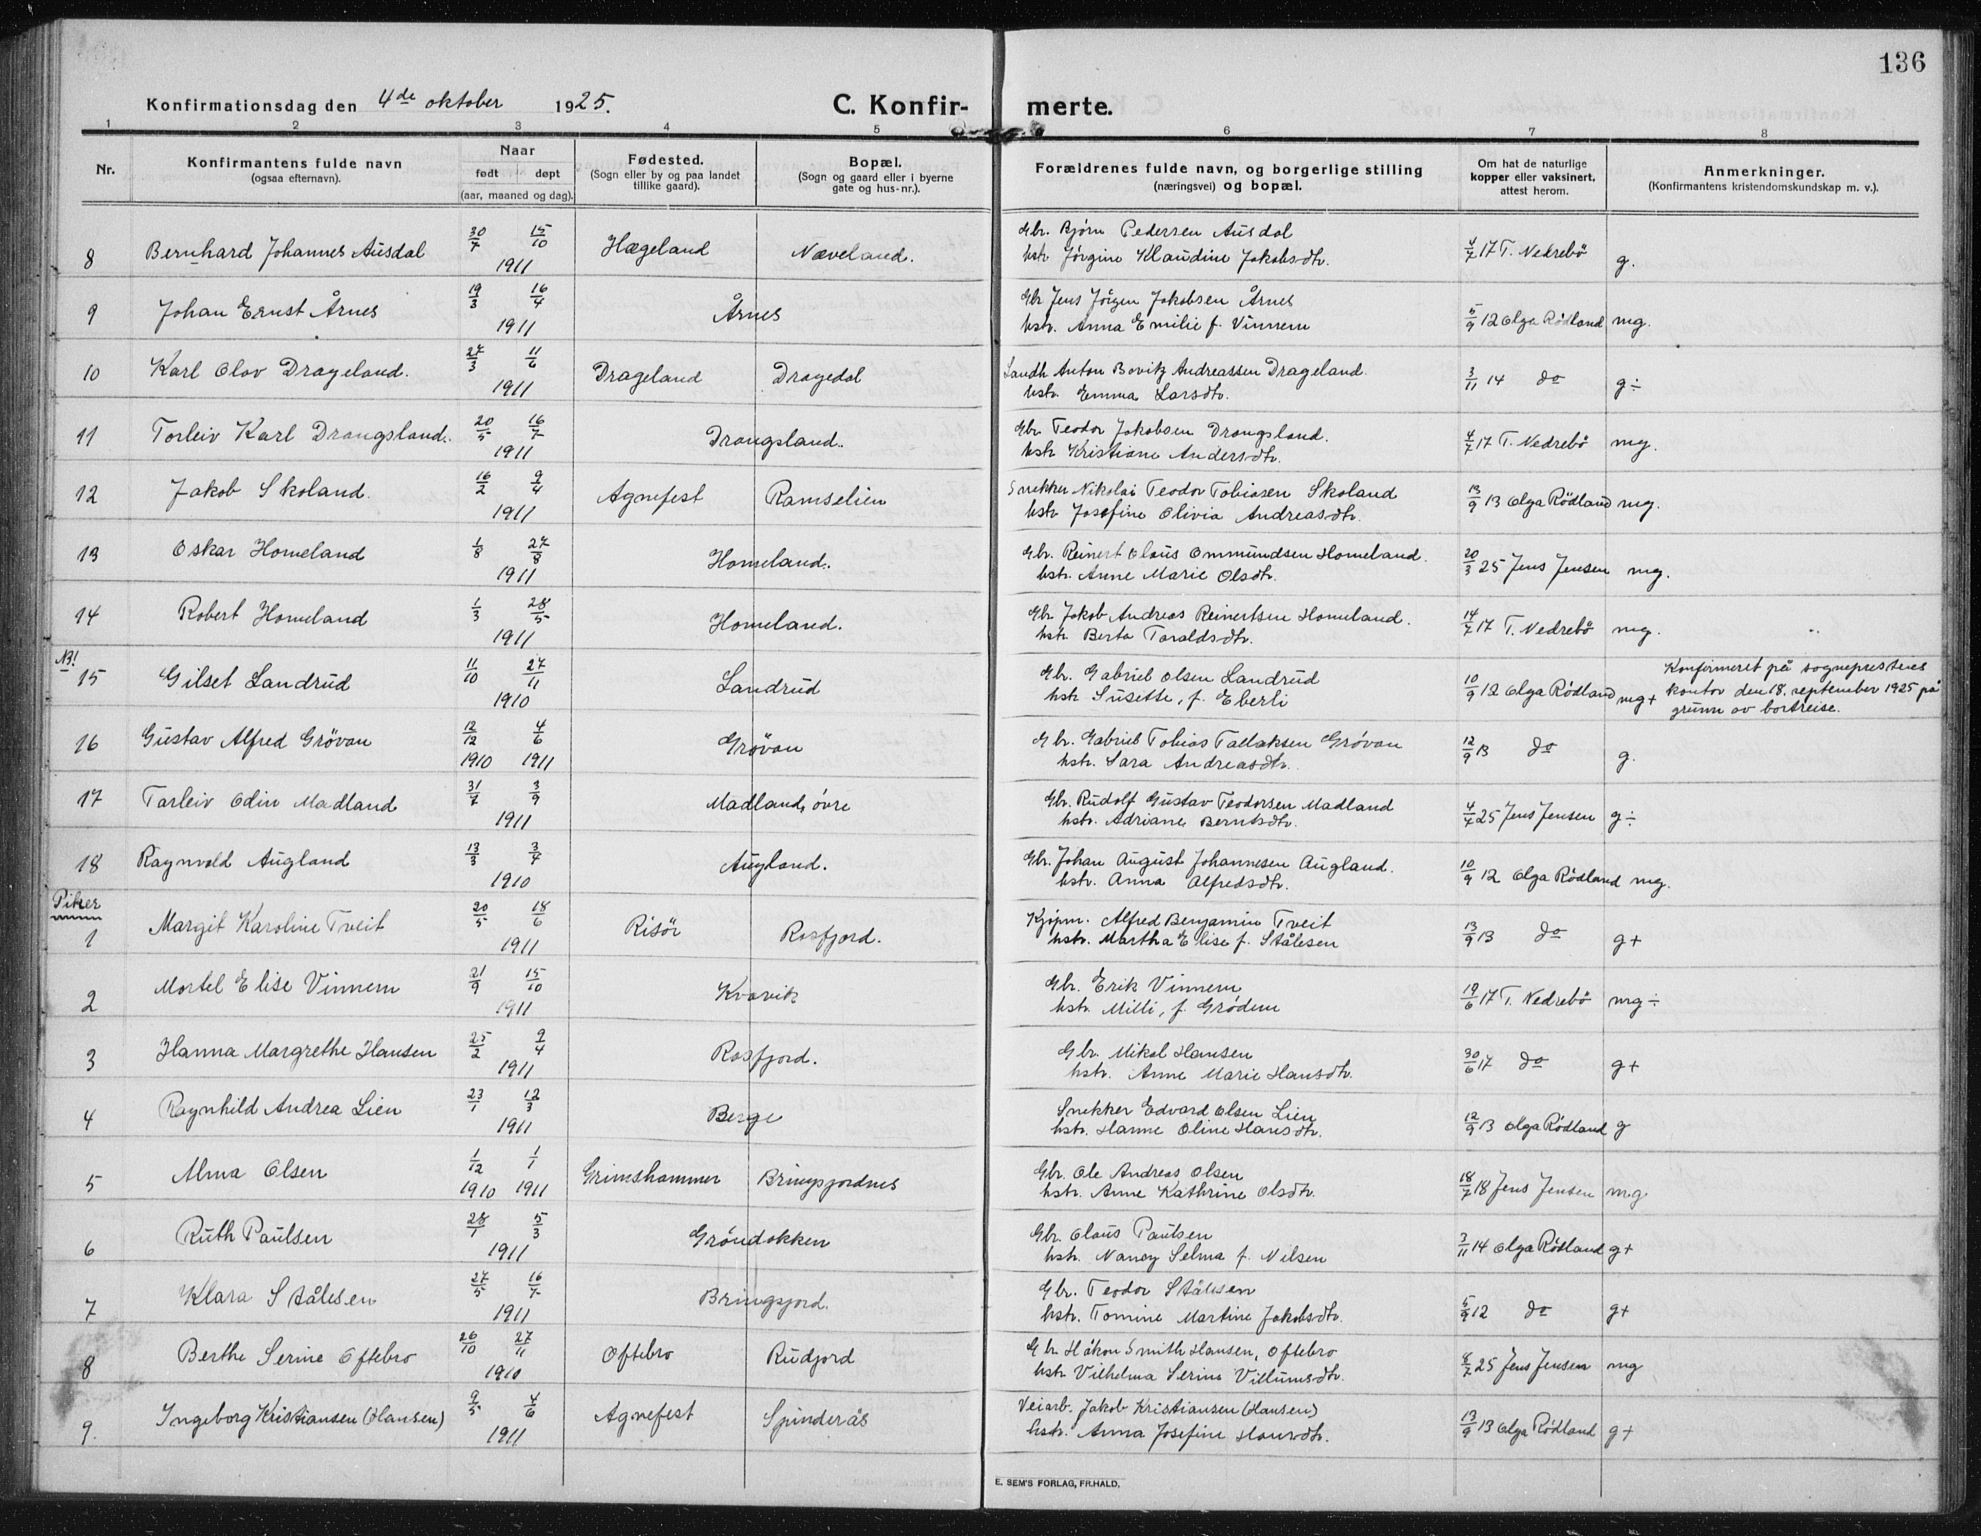 136
Konfirmationsdag den 4de oktober 1925. C. Konfir- merte.
1 2 3 4 5 6 7 8
Nr. Konfirmantens fulde navn (ogsaa efternavn). Naar født døpt (aar, maaned og dag). Fødested. (Sogn eller by og paa landet tillike gaard). Bopæl. (Sogn og gaard eller i byerne gate og hus-nr.). Forældrenes fulde navn, og borgerlige stilling (næringsvei) og bopæl. Om hat de naturlige kopper eller vaksinert, attest herom. Anmerkninger. (Konfirmantens kristendomskundskap m. v.).
8 Bernhard Johannes Ausdal 30/7 15/10 1911 Hægeland Næveland. Gbr. Bjørn Pedersen Ausdal
hstr. Jørgine Klaudine Jakobsdtr. 4/7 17 T. Nedrebö g.
9 Johan Ernst Årnes 19/3 16/4 1911 Årnes Gbr Jens Jörgen Jakobsen Årnes
hstr. Anna Emilie f. Vinnem 5/9 12 Olga Rödland mg.
10 Karl Olav Drageland. 27/3 11/6 1911 Drageland Dragedal Landh Anton Bovitz Andreassen Drageland.
hstr. Emma Larsdtr. 3/11 14 do g÷
11 Torleiv Karl Drangsland. 20/5 16/7 1911 Drangsland. Gbr Teodor Jakobsen Drangsland.
hstr Kristiane Andersdtr. 4/7 17 T. Nedrebö mg.
12 Jakob Skoland. 16/2 9/4 1911 Agnefest Ramselien Snekker Nikolai Teodor Tobiasen Skoland
hstr Josefine Olivia Andreasdtr. 13/9 13 Olga Rödland mg.
13 Oskar Homeland 1/8 27/8 1911 Homeland. Gbr. Reinert Olaus Ommundsen Homeland.
hstr. Anne Marie Olsdtr. 20/3 25 Jens Jensen mg.
14 Robert Homeland 1/3 28/5 1911 Homeland. Gbr Jakob Andreas Reinertsen Homeland.
hstr Berta Taraldsdtr. 14/7 17 T. Nedrebö mg.
NB! 15 Gilset Landrud 11/10 27/11 1910 Landrud Gbr. Gabriel Olsen Landrud
hstr Susette, f. Eberli 10/9 12 Olga Rödland mg+ Konfirmeret på sogneprestens
kontor den 18. september 1925 på
grunn av bortreise.
16 Gustav Alfred Grövan 12/12 1910 4/6 1911 Grövan Gbr. Gabriel Tobias Tallaksen Grövan
hstr. Sara Andreasdtr. 12/9 13 do g.
17 Tarleiv Odin Madland 31/7 3/9 1911 Madland, övre Gbr. Rudolf Gustav Teodorsen Madland
hstr. Adriane Berntsdtr. 4/4 25 Jens Jensen g÷
18 Ragnvald Augland 13/3 3/4 1910 Augland. Gbr. Johan August Johannesen Augland.
hstr. Anna Alfredsdtr. 10/9 12 Olga Rödland mg.
Piker
1 Margit Karoline Tveit 20/5 18/6 1911 Risör Rosfjord. Kjøpm. Alfred Benjamin Tveit
hstr. Martha Elise f. Stålesen 13/9 13 do g+
2 Mortel Elise Vinnem 21/9 15/10 1911 Kvavik Gbr. Erik Vinnem
hstr. Milli, f. Grödem 19/6 17 T. Nedrebö mg÷
3 Hanna Margrethe Hansen 25/2 9/4 1911 Rosfjord. Gbr. Mikal Hansen
hstr. Anne Marie Hansdtr. 30/6 17 do g+
4 Ragnhild Andrea Lien 23/1 12/3 1911 Berge Snekker Edvard Olsen Lien
hstr. Hanne Oline Hansdtr. 12/9 13 Olga Rödland g
5 Alma Olsen 1/12 1910 1/1 1911 Grimshammer Bringsjordnes Gbr. Ole Andreas Olsen
hstr. Anne Kathrine Olsdtr. 18/7 18 Jens Jensen mg
6 Ruth Paulsen 28/1 5/3 1911 Gröndokken Gbr. Olaus Paulsen
hstr. Nancy Selma f. Nilsen 3/11 14 Olga Rödland g+
7 Klara Stålesen 27/5 16/7 1911 Bringsjord. Gbr. Teodor Stålesen
hstr. Tomine Martine Jakobsdtr. 5/9 12 do g+
8 Berthe Serine Oftebro 26/10 27/11 1910 Oftebro Rudjord Gbr Håkon Smith Hansen, Oftebro
hstr Vilhelma Serine Villumsdtr. 8/7 25 Jens Jensen mg
9. Ingeborg Kristiansen (Hansen) 9/5 4/6 1911 Agnefest Spinderås Veiarb. Jakob Kristiansen (Hansen)
hstr. Anna Josefine Hansdtr. 13/9 13 Olga Rödland g+
E. SEM'S FORLAG, FR.HALD.